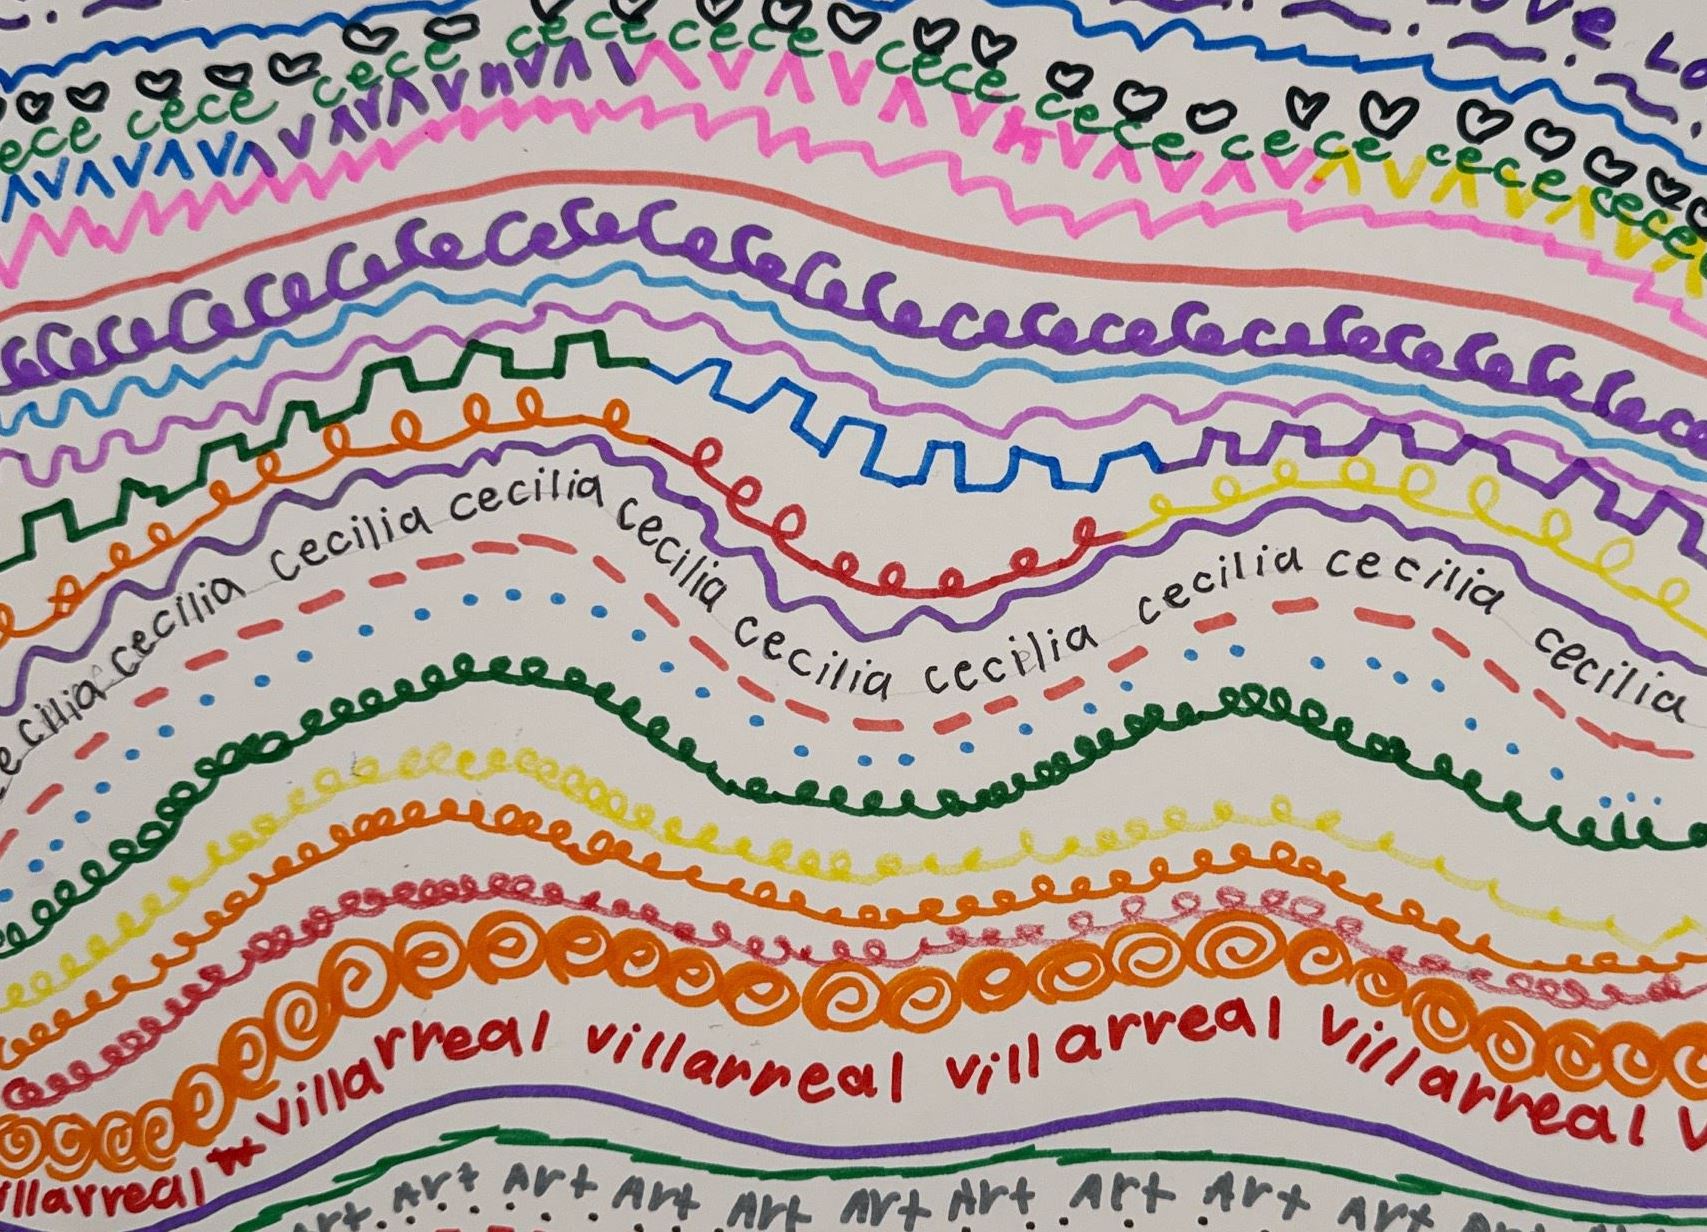 ove Lo
ece cece cece cece cece cece cece cece cece cece
ecilia cecilia cecilia cecilia cecilia cecilia cecilia cecilia cecilia cecilia
illarreal villarreal villarreal villarreal villarreal v
Art Art Art Art Art Art Art Art Art Art